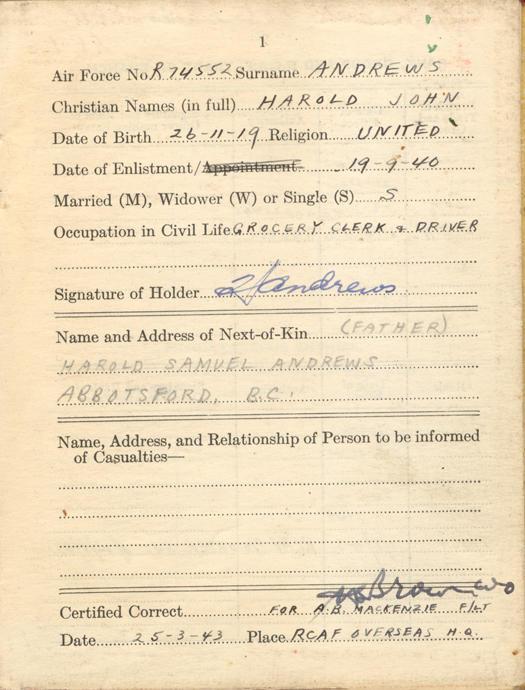 1
Air Force No R74552 Surname ANDREWS
Christian Names (in full) HAROLD JOHN
Date of Birth 26-11-19 Religion UNITED
Date of Enlistment/Appointment 19-9-40
Married (M), Widower (W) or Single (S) S
Occupation in Civil Life GROCERY CLERK & DRIVER
Signature of Holder Andrews
Name and Address of Next-of-Kin (FATHER)
HAROLD SAMUEL ANDREWS
ABBOTSFORD, B.C.
Name, Address, and Relationship of Person to be informed
of Casualties—
Brown WO
Certified Correct FOR A.B. MACKENZIE F/LT
Date 25-3-43 Place RCAF OVERSEAS H.Q.